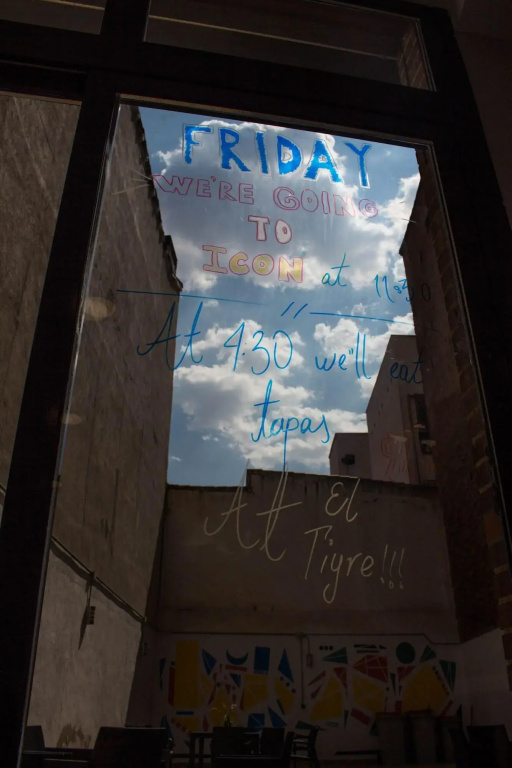 FRIDAY
WE'RE GOING
TO
ICON at 11:30
At 4.30 we'll eat
tapas
At El
Tigre!!!